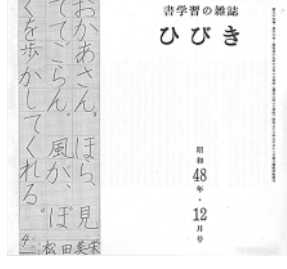 書学習の雑誌
ひびき
昭和48年・12月号
おかあさん。ほら、見
ててごらん。風が、ぼ
くを歩かしてくれる。
4 松田美